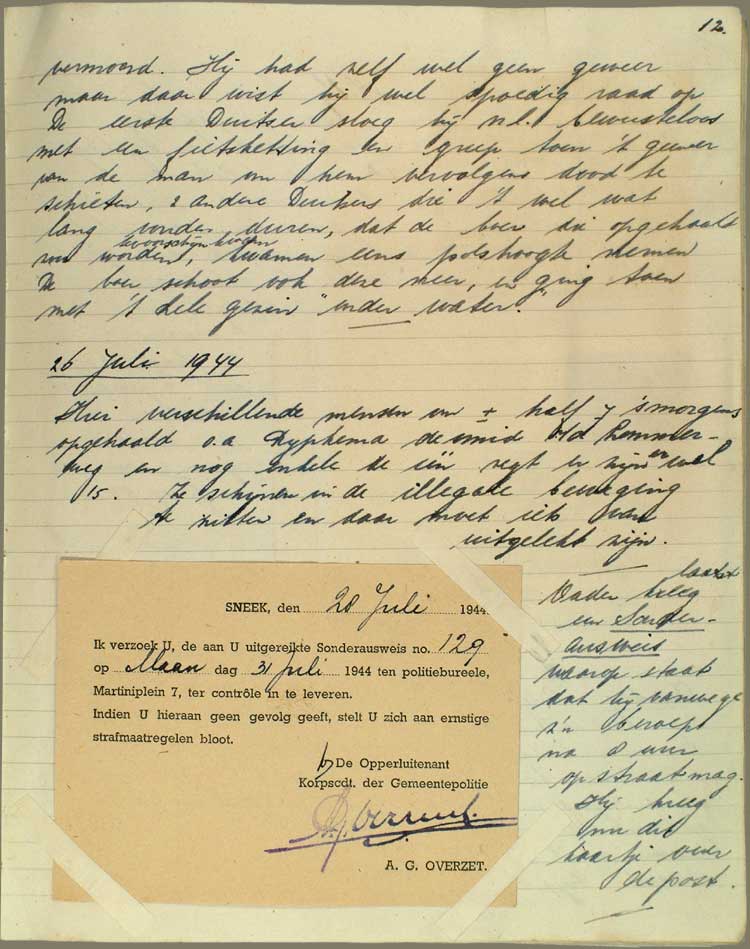 12.
vermoord. Hij had zelf wel geen geweer
maar daar wist hij wel spoedig raad op
De eerste Duitser sloeg hij n.l. bewusteloos
met een fietsketting en greep toen 't geweer
van de man om hem vervolgens dood te
schieten, 2 andere Duitsers die 't wel wat
lang vonden duren, dat de boer die opgehaald
zou worden, kwamen eens polshoogte nemen
De boer schoot ook deze neer, en ging toen
met 't hele gezin "onder water."
26 Juli 1944
Hier verschillende mensen om ± half 7 's morgens
opgehaald o.a. Dyphema de smid v/d Lemmer-
weg en nog enkele de één zegt er zijn er wel
15. Ze schijnen in de illegale beweging
te zitten en daar moet iets van
uitgelekt zijn.
SNEEK, den 28 Juli 1944
Ik verzoek U, de aan U uitgereikte Sonderausweis no. 129
op Maan dag 31 Juli 1944 ten politiebureele,
Martiniplein 7, ter contrôle in te leveren.
Indien U hieraan geen gevolg geeft, stelt U zich aan ernstige
strafmaatregelen bloot.
De Opperluitenant
Korpscdt. der Gemeentepolitie
A. G. OVERZET.
laatst
Vader kreeg
een Sonder-
ausweis
waarop staat
dat hij vanwege
z'n beroep
na 8 uur
op straat mag.
Hij kreeg
nu dit
kaartje over
de post.